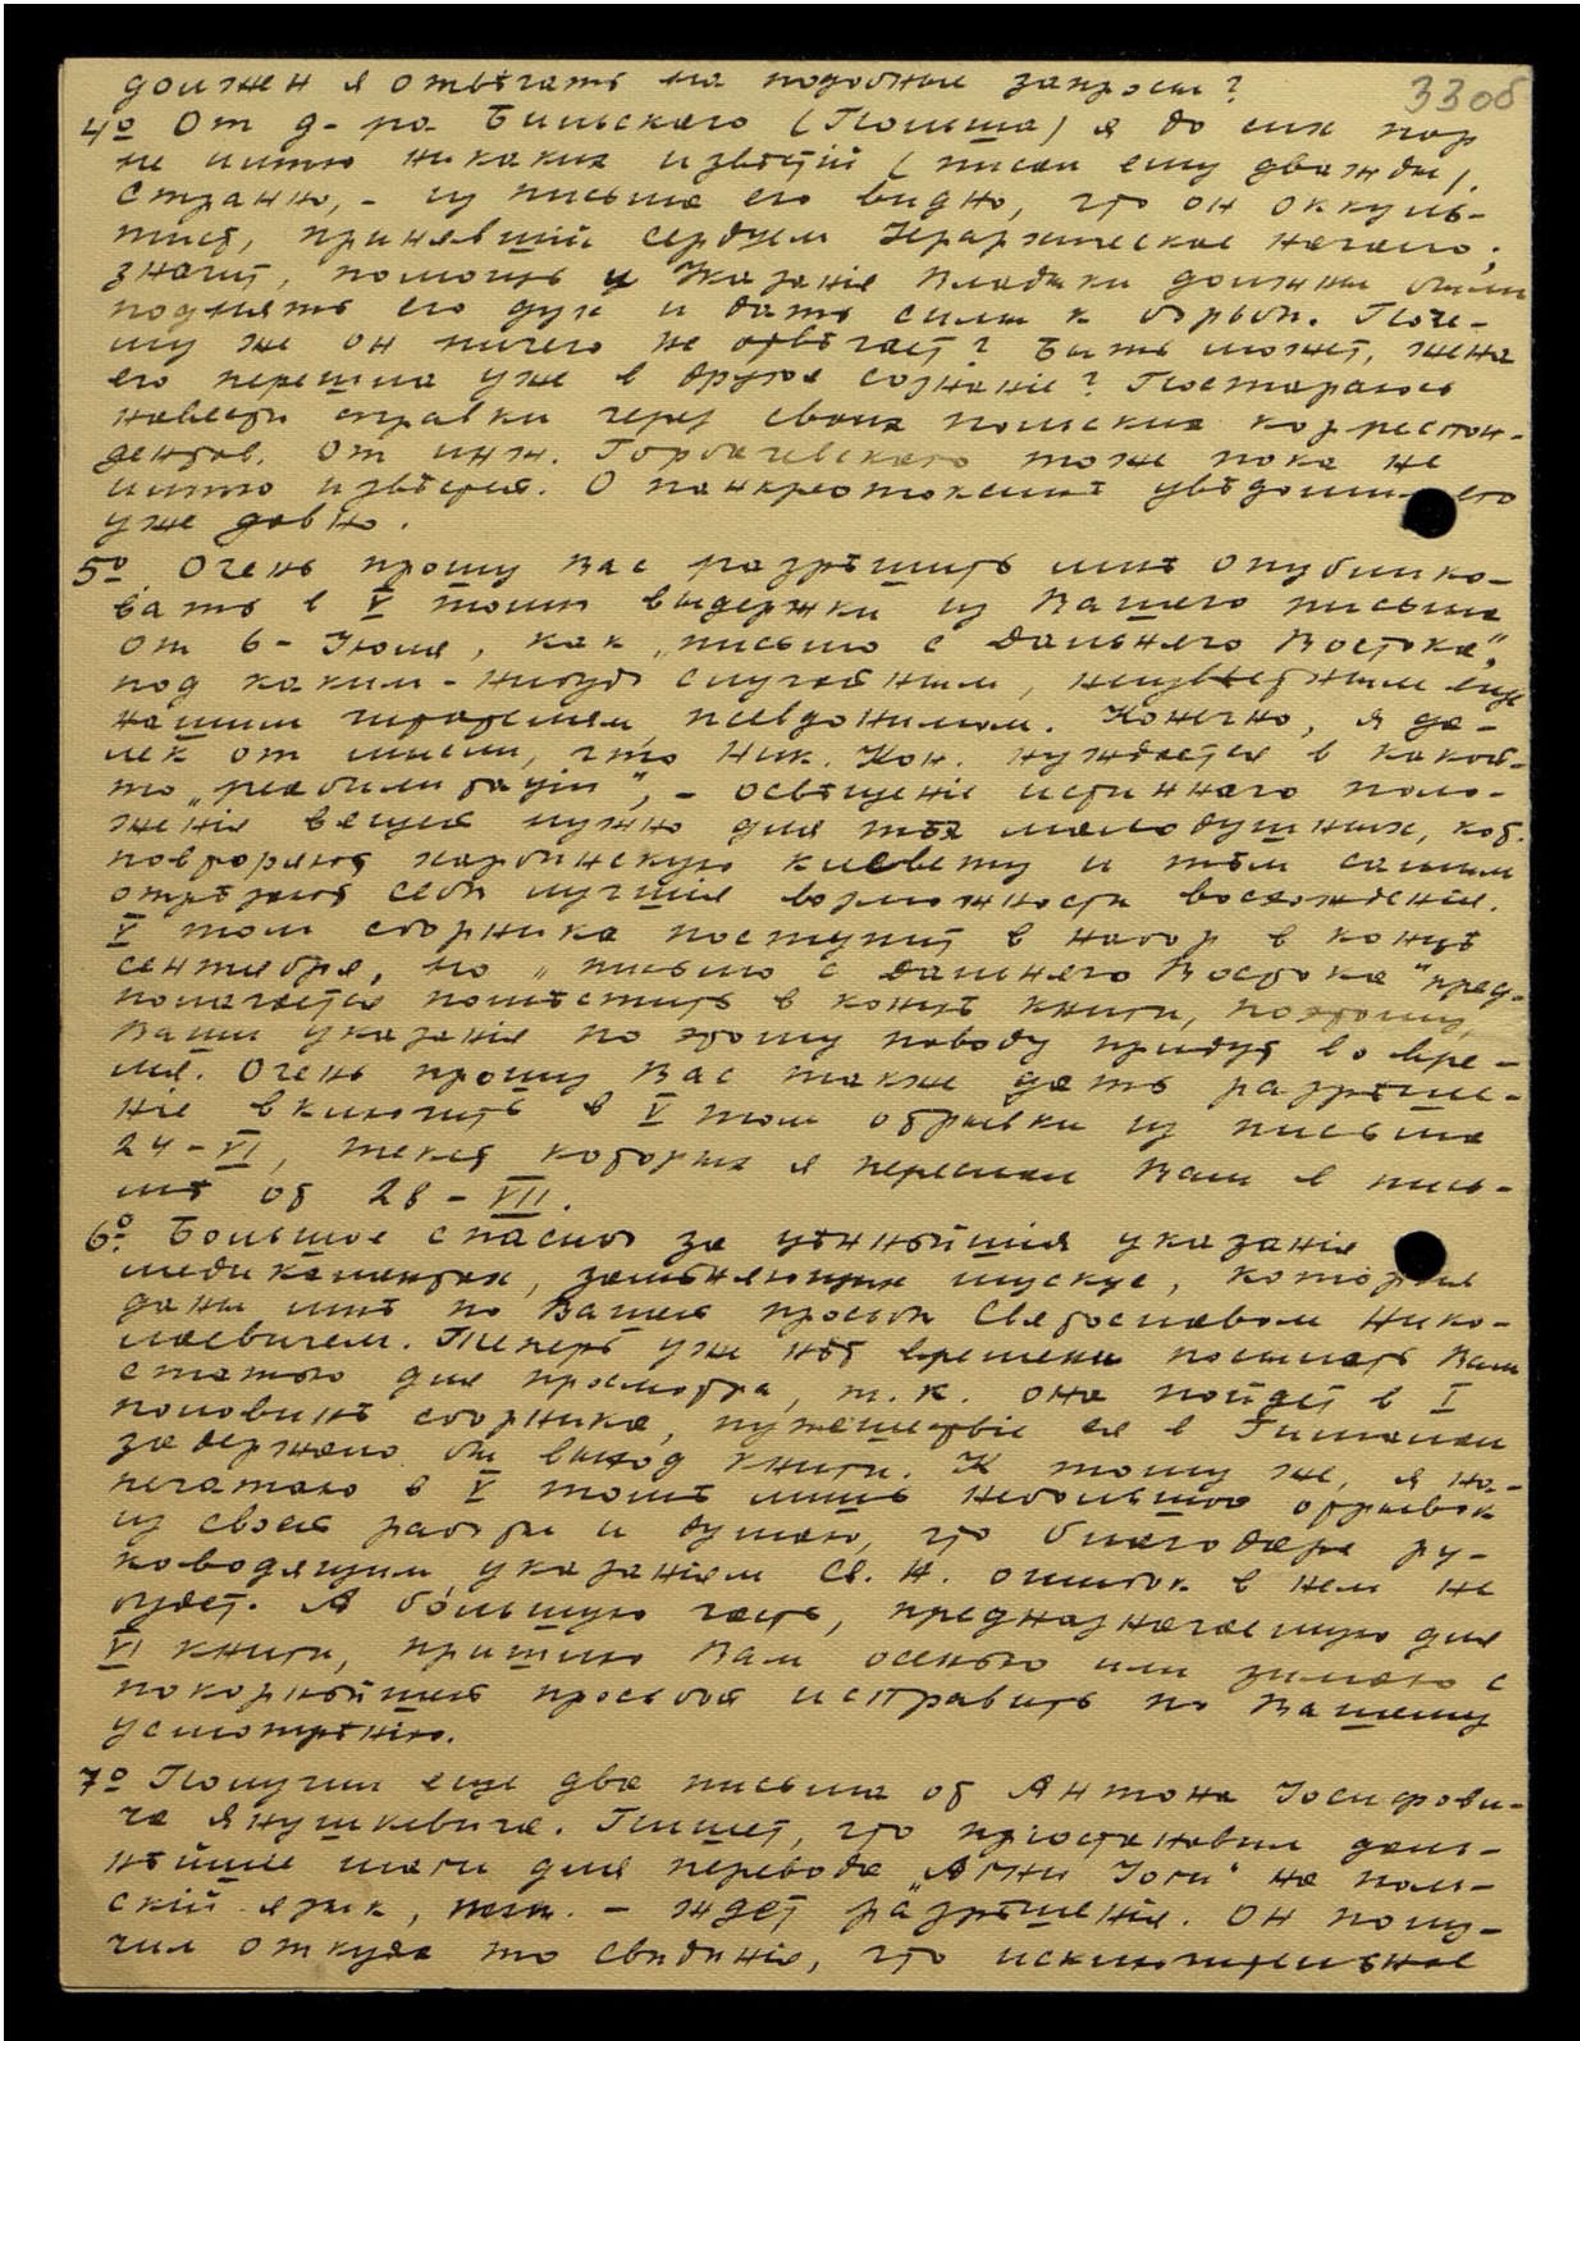 должен я отвѣчать на подобные запросы?
33об
4º От д-ра Бильскаго (Польша) я до сих пор
не имѣю никаких извѣстій (писал ему дважды).
Странно, - из письма его видно, что он оккуль-
тист, принявшій сердцем Іерархическое Начало;
значит, помощь и Указанія Владыки должны были
поднять его дух и дать силы к борьбѣ. Поче-
му же он ничего не отвѣчает? Быть может, жена
его перешла уже в другое сознаніе? Постараюсь
навести справки через своих польских корреспон-
дентов. От инж. Горбачевскаго тоже пока не
имѣю извѣстія. О панкреотоксинѣ увѣдомил его
уже давно.
5º. Очень прошу Вас разрѣшить мнѣ опублико-
вать в V томѣ выдержки из Вашего письма
от 6-Іюля, как „письмо с Дальняго Востока",
под каким-нибудь случайным, неизвестным еще
нашим читателям, псевдонимом. Конечно, я да-
лек от мысли, что Ник. Кон. нуждается в какой-
то „реабилитаціи", - освѣщеніе истиннаго поло-
женія вещей нужно для тѣх малодушных, кот.
повторяют харбинскую клевету и тѣм самым
отрѣзают себѣ лучшія возможности восхожденія.
V том сборника поступит в набор в концѣ
сентября, но „письмо с Дальняго Востока" пред-
полагается помѣстить в концѣ книги, поэтому,
Ваши указанія по этому поводу придут во вре-
мя. Очень прошу Вас также дать разрѣше-
ніе включить в V том отрывки из письма
24-VI, текст которых я переслал Вам в пись-
мѣ от 28-VII.
6º. Большое спасибо за цѣннѣйшія указанія
медикаментах, замѣняющих мускус, которые
даны мнѣ по Вашей просьбѣ Святославом Нико-
лаевичем. Теперь уже нѣт времени посылать Вам
статью для просмотра, т.к. она пойдет в I
половинѣ сборника, путешествіе ея в Гималаи
задержало бы выход книги. К тому же, я на-
печатаю в V томѣ лишь небольшой отрывок
из своей работы и думаю, что благодаря ру-
ководящим указаніям Св. Н. ошибок в нем не
будет. А бо́льшую часть, предназначаемую для
VI книги, пришлю Вам осенью или зимою с
покорнѣйшей просьбой исправить по Вашему
усмотрѣнію.
7º Получил еще два письма от Антона Іосифови-
ча Янушкевича. Пишет, что пріостановил даль-
нѣйшіе шаги для перевода „Агни Іоги" на поль-
скій язык, - ждет разрѣшенія. Он полу-
чил откуда то свѣдѣнія, что исключительное